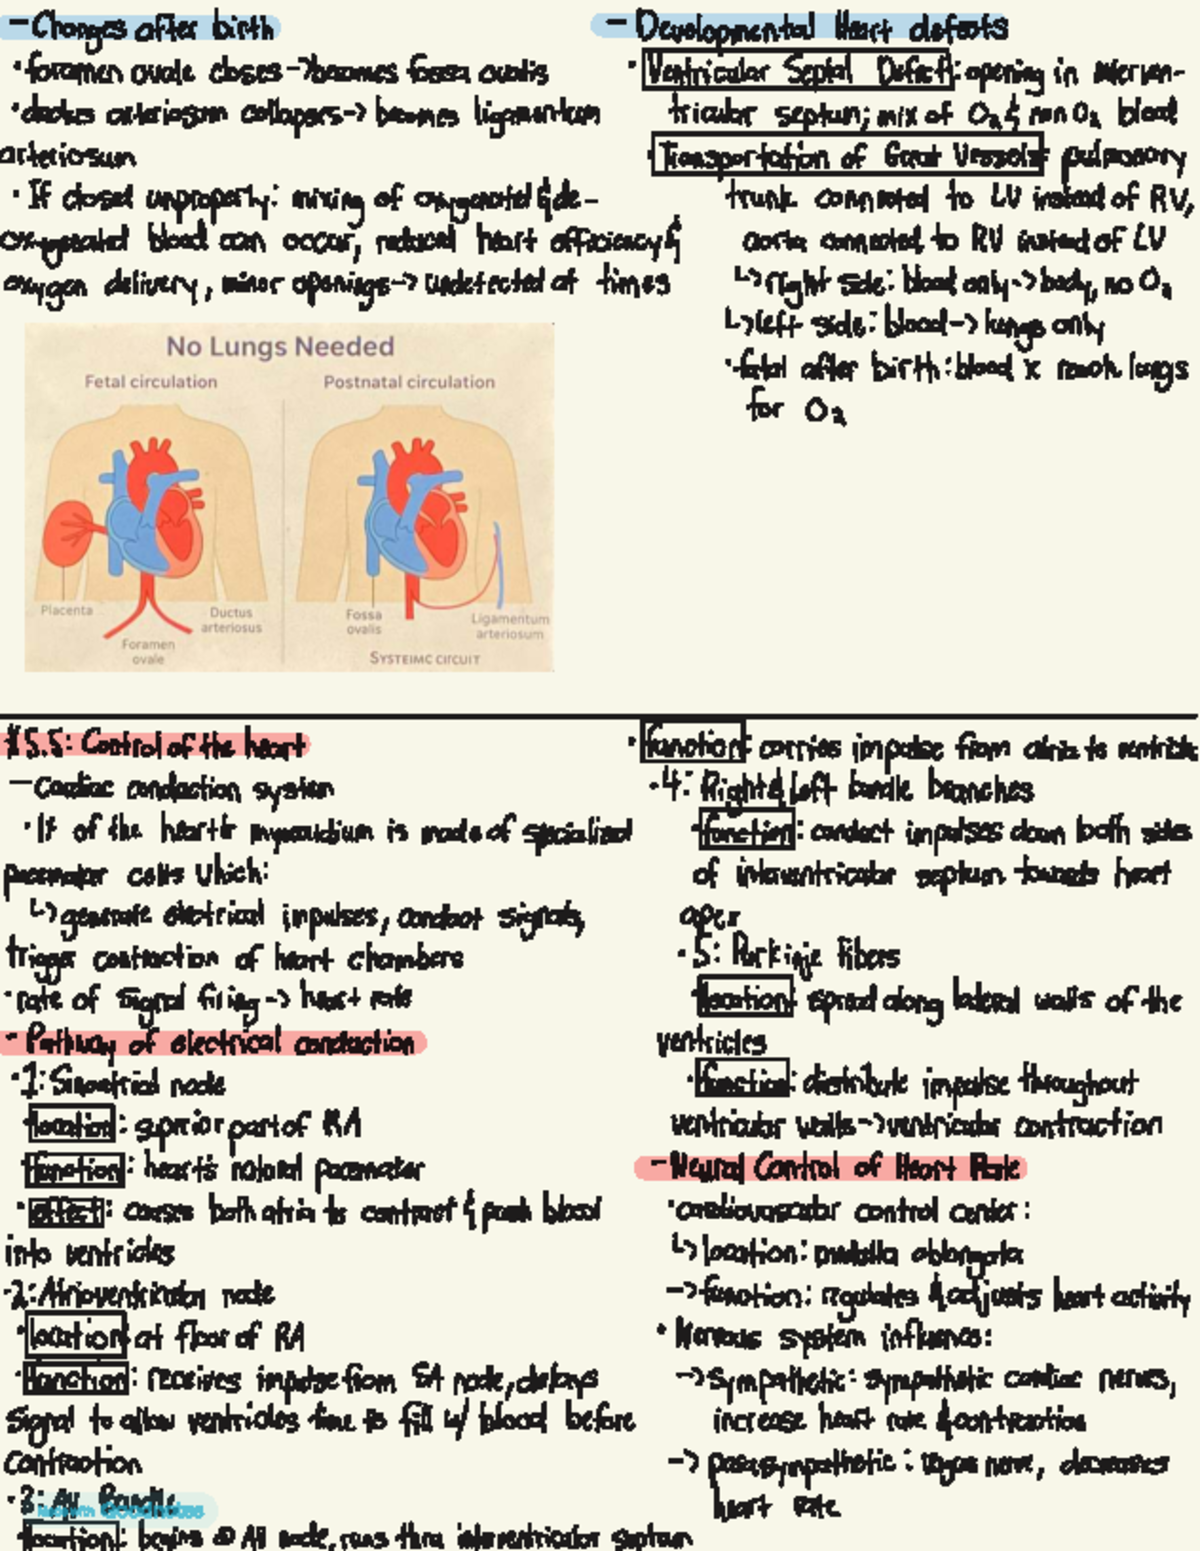 - Changes after birth
• foramen ovale closes -> becomes fossa ovalis
• ductus arteriosum collapses -> becomes ligamentum
arteriosum
• If closed unproperly: mixing of oxygenated & de-
oxygenated blood can occur, reduced heart efficiency &
oxygen delivery, minor openings -> undetected at times
No Lungs Needed
Fetal circulation
Postnatal circulation
Placenta
Ductus
arteriosus
Foramen
ovale
Fossa
ovalis
Ligamentum
arteriosum
SYSTEIMC CIRCUIT
- Developmental Heart defects
• Ventricular Septal Defect: opening in interven-
tricular septum; mix of O₂ & non O₂ blood
• Transportation of Great Vessels: pulmonary
trunk connected to LV instead of RV,
aorta connected to RV instead of LV
↳ right side: blood only -> body, no O₂
↳ left side: blood -> lungs only
• fatal after birth: blood x reach lungs
for O₂
15.5: Control of the heart
- Cardiac conduction system
• 1% of the heart's myocardium is made of specialized
pacemaker cells which:
↳ generate electrical impulses, conduct signals,
trigger contraction of heart chambers
• rate of signal firing -> heart rate
- Pathway of electrical conduction
• 1: Sinoatrial node
location: superior part of RA
function: heart's natural pacemaker
• effect: causes both atria to contract & push blood
into ventricles
• 2: Atrioventricular node
• location at floor of RA
• function: receives impulse from SA node, delays
signal to allow ventricles time to fill w/ blood before
contraction
• 3: AV Bundle
Made with Goodnotes
location: begins @ AV node, runs thru interventricular septum
• function: carries impulse from atria to ventricle
• 4: Right & left bundle branches
• function: conduct impulses down both sides
of interventricular septum towards heart
apex
• 5: Purkinje Fibers
location: spread along lateral walls of the
ventricles
• function: distribute impulse throughout
ventricular walls -> ventricular contraction
- Neural Control of Heart Rate
• cardiovascular control center:
↳ location: medulla oblongata
-> function: regulates & adjusts heart activity
• Nervous system influence:
-> sympathetic: sympathetic cardiac nerves,
increase heart rate & contraction
-> parasympathetic: vagus nerve, decreases
heart rate